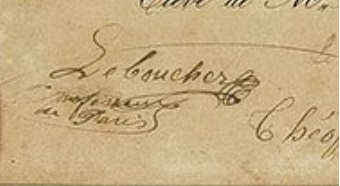 Élève de M.
Leboucher
professeur
de Paris
Théo